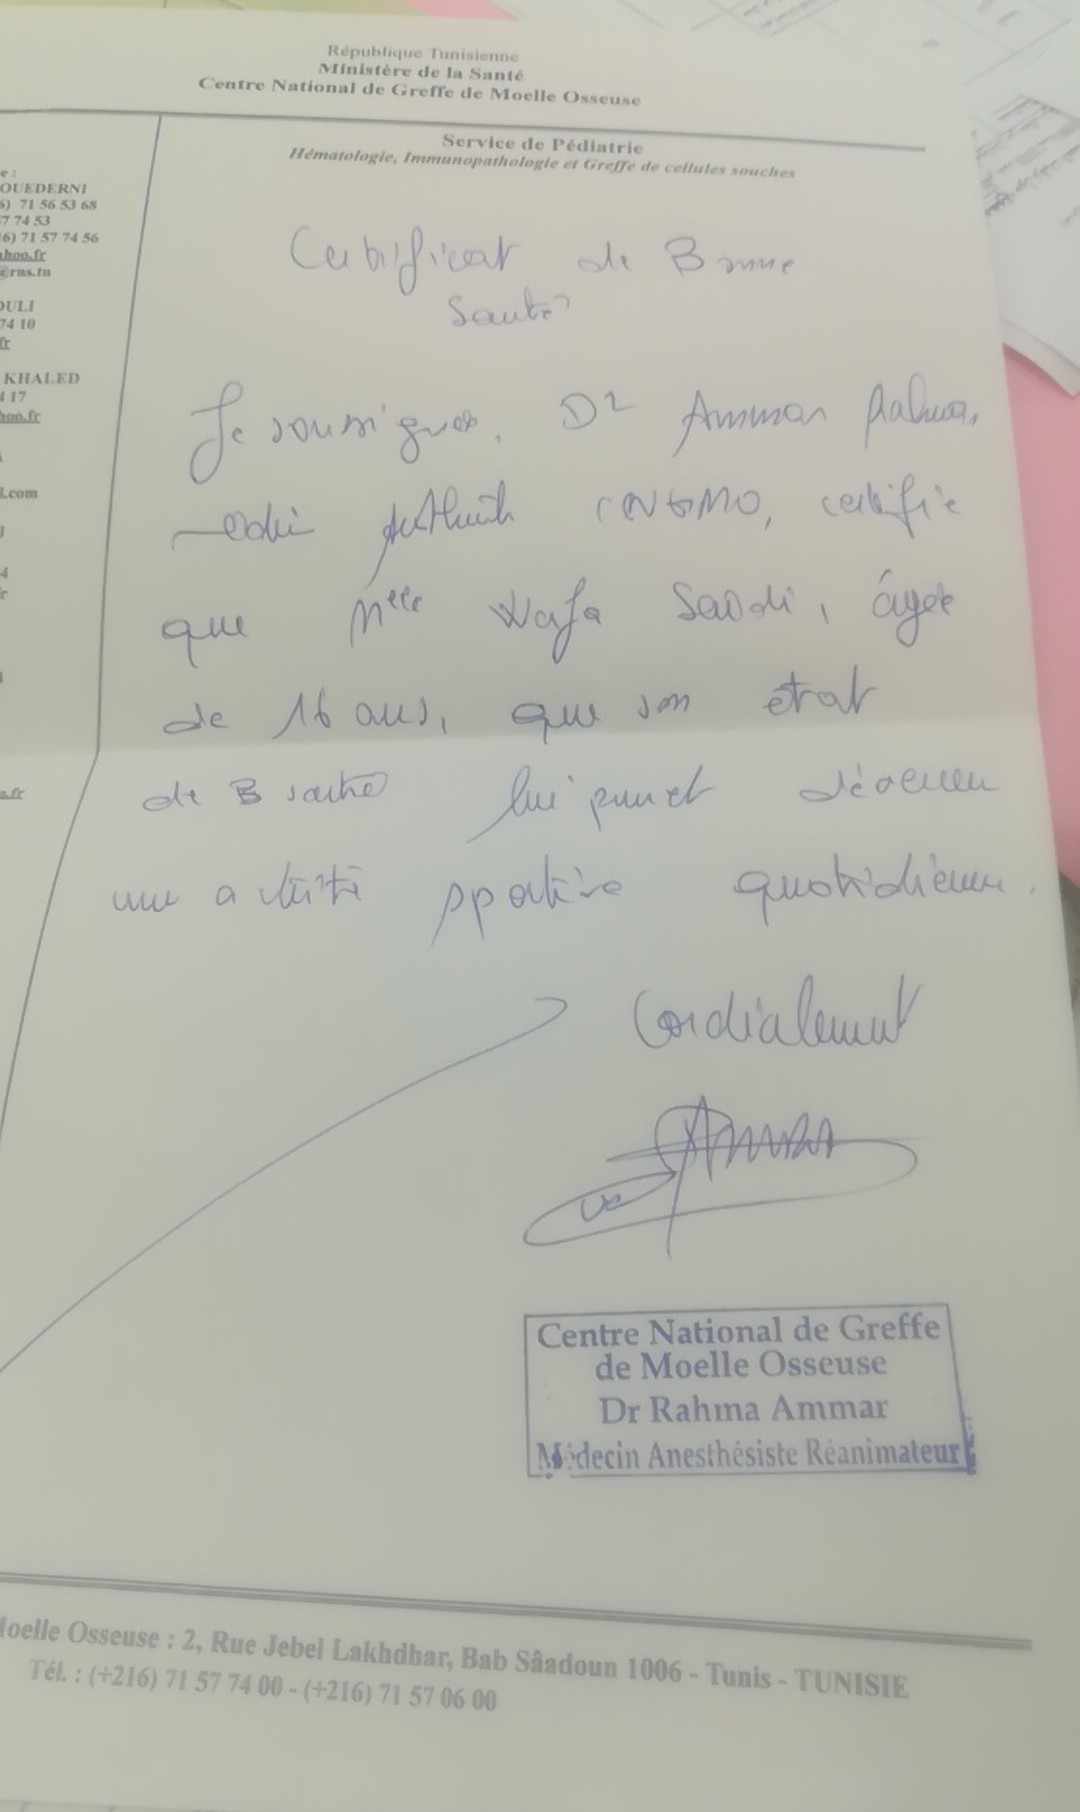 République Tunisienne
Ministère de la Santé
Centre National de Greffe de Moelle Osseuse
Service de Pédiatrie
Hématologie, Immunopathologie et Greffe de cellules souches
e :
OUEDERNI
6) 71 56 53 68
7 74 53
6) 71 57 74 56
ahoo.fr
@rns.tn
OULI
74 10
fr
KHALED
4 17
hoo.fr
l.com
4
r
a.fr
Certificat de Bonne
Santé
Je soussignée, Dr Ammar Rahma,
CNGMO, certifie
que Melle Wafa Saidi, âgée
de 16 ans, que son état
de B santé lui permet
une activité sportive quotidienne.
Cordialement
Ammar
Centre National de Greffe
de Moelle Osseuse
Dr Rahma Ammar
Médecin Anesthésiste Réanimateur
Moelle Osseuse : 2, Rue Jebel Lakhdhar, Bab Sâadoun 1006 - Tunis - TUNISIE
Tél. : (+216) 71 57 74 00 - (+216) 71 57 06 00